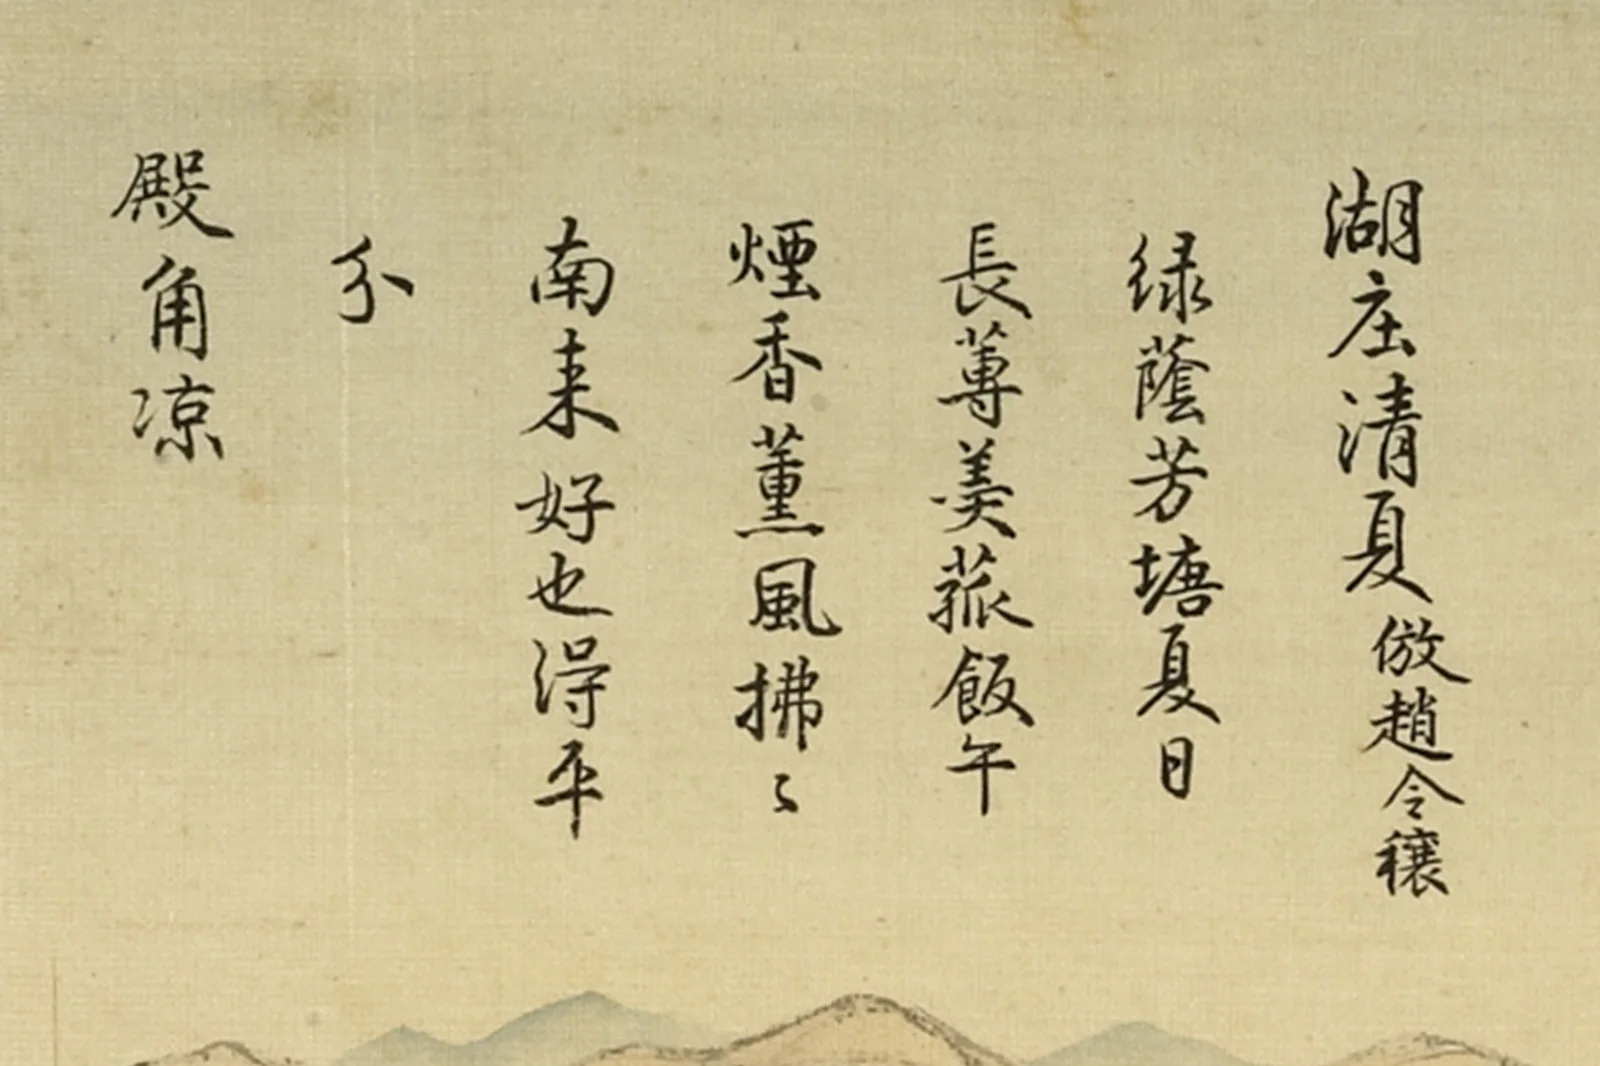 湖庄清夏倣趙令穰
緑蔭芳塘夏日
長蓴羹菰飯午
煙香薰風拂〻
南来好也得平
分
殿角凉